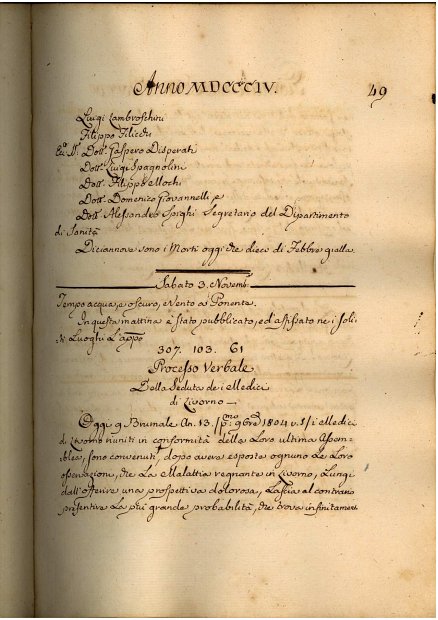 Anno MDCCCIV.
49
Luigi Lambroschini
Filippo Filicchi
Dott. Gaspero Disperati
Dott. Luigi Spagnolini
Dott. Filippo Mochi
Dott. Domenico Giovannelli, e
Dott. Alessandro Sproni Segretario del Dipartimento
di Sanità
Diciannove sono i Morti oggi, che dieci di Febbre gialla.
Sabato 3. Novemb.
Tempo acqua, e oscuro, e Vento a Ponente.
In questa mattina è Stato pubblicato, ed affissato ne i Soli-
ti Luoghi L'app.o
307. 103. 61
Processo Verbale
Della Seduta de i Medici
di Livorno
Oggi 9 Brumale An. 13. 1804 i Medici
di Livorno riuniti in conformità della Loro ultima Assem-
blea, sono convenuti, dopo avere esposte ognuno Le Loro
osservazioni, che La Malattia regnante in Livorno, Lungi
dall'offerire una prospettiva dolorosa, Lascia al contrario
presentire La più grande probabilità, che trova infinitament